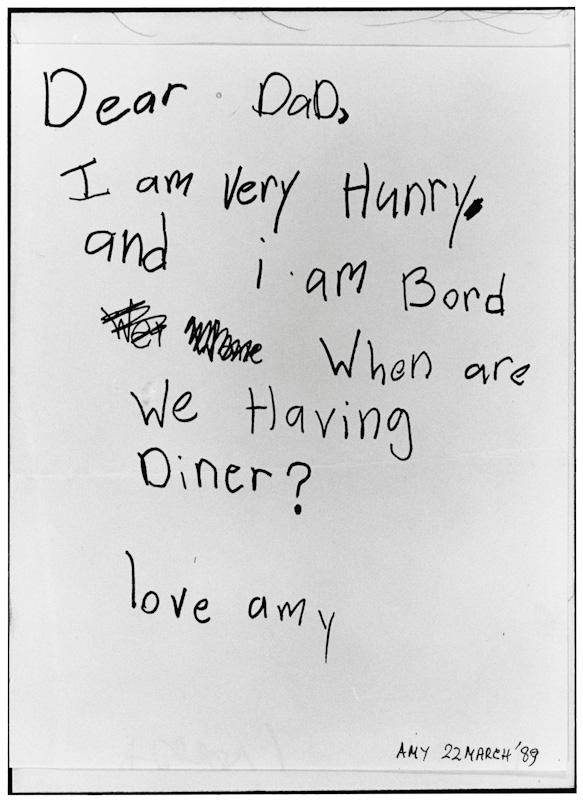 Dear DaD,
I am very Hunry.
and i am Bord
When are
We Having
Diner?
love amy
AMY 22 MARCH '89